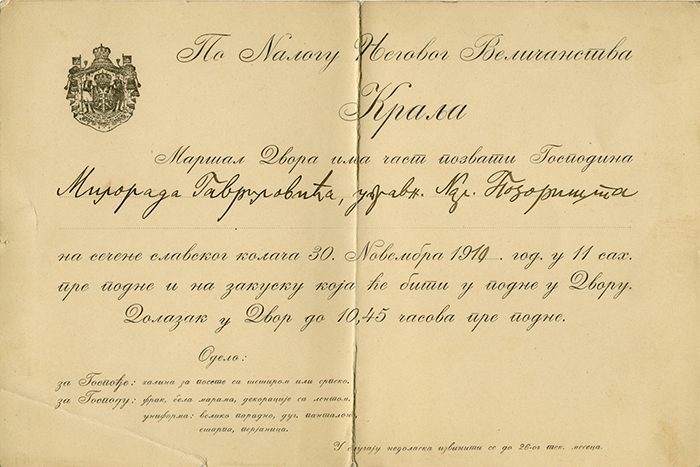 По Налогу Његовог Величанства
Краља
Маршал Двора има част позвати Господина
Милорада Гавриловића, управн. Нар. Позоришта
на сечење славског колача 30. Новембра 1911. год. у 11 сах.
пре подне и на закуску која ће бити у подне у Двору.
Долазак у Двор до 10,45 часова пре подне.
Одело:
за Госпође: халина за посете са шеширом или српско.
за Господу: фрак, бела марама, декорације са лентом.
униформа: велико парадно, дуг. панталоне,
ешарпа, перјаница.
У случају недоласка извинити се до 26-ог тек. месеца.